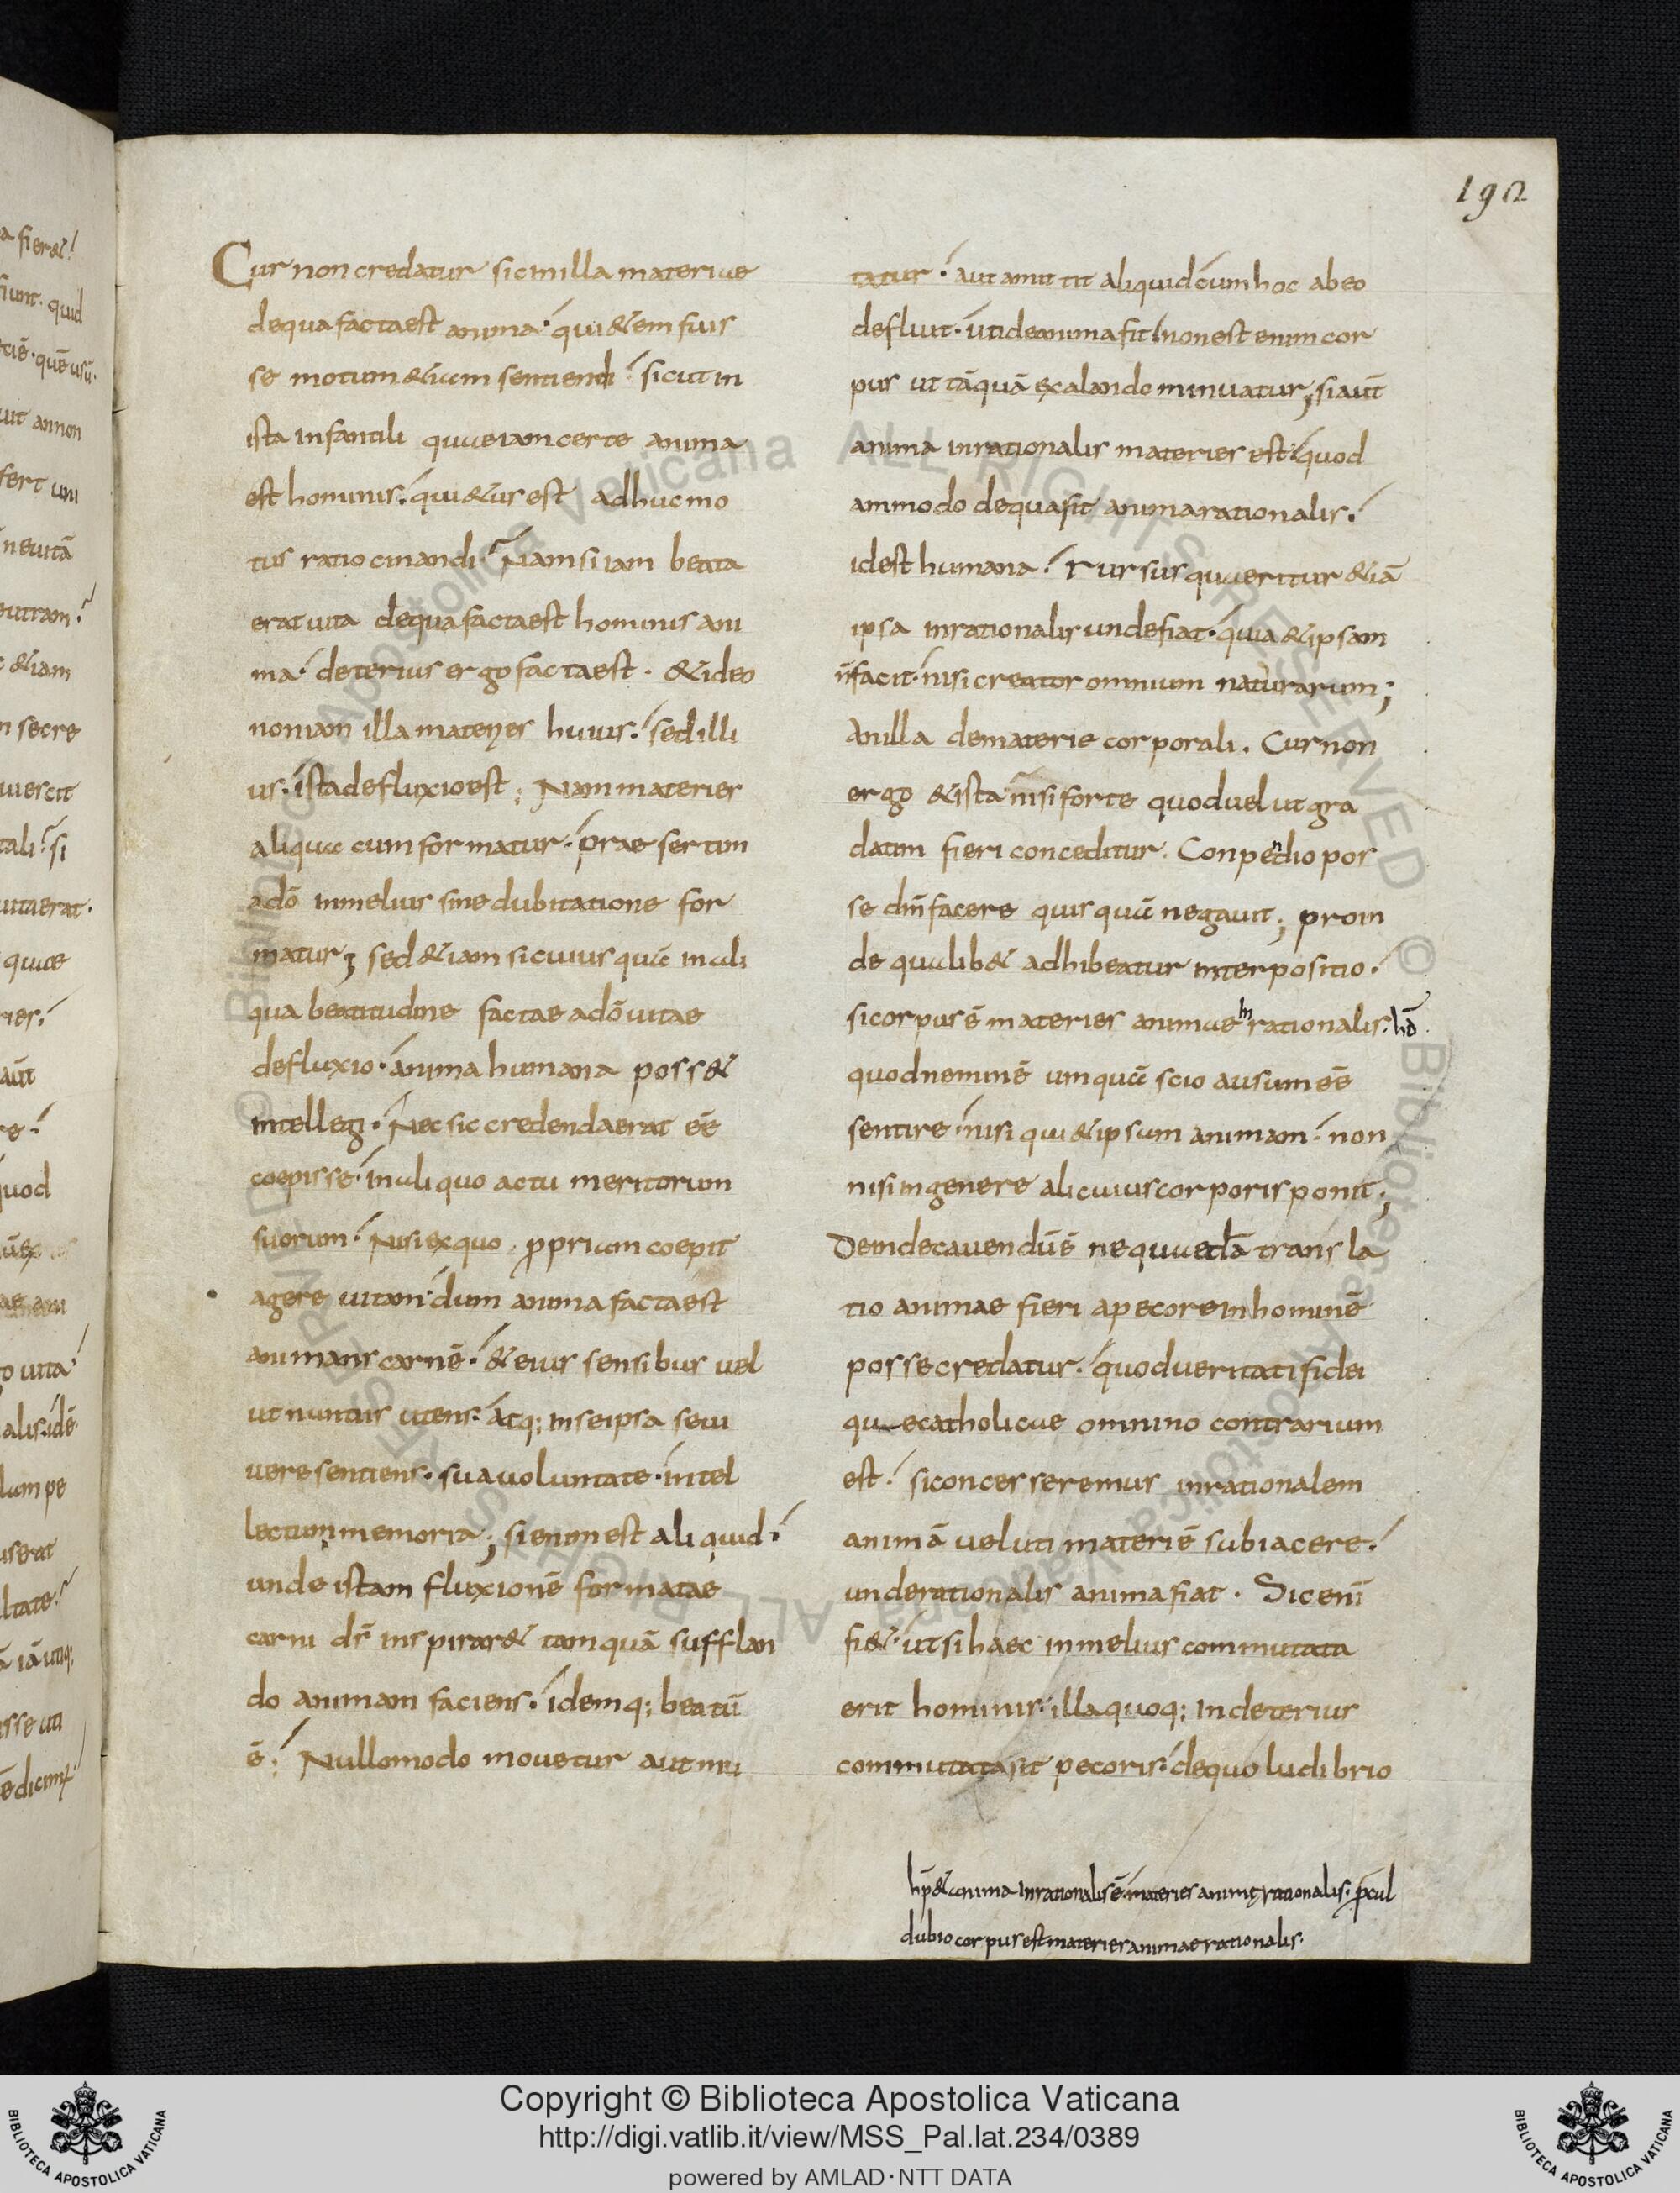 192
Cur non credatur sic in illa materiae
de qua facta est anima· qui&em fuis
se motum &iam sentiendi· sicut in
ista infantili quae iam certe anima
est hominis· qui&us est adhuc mo
tus ratiocinandi· Nam si iam beata
erat uita de qua facta est hominis ani
ma· deterius ergo facta est· & ideo
non iam illa materies huius· sed illi
us· ista defluxio est; Nam materies
aliqua cum formatur· praesertim
a dō in melius sine dubitatione for
matur; sed &iam si cuiusquā in ali
qua beatitudine factae a dō uitae
defluxio· anima humana poss&
intellegi· Nec sic credenda erat eē
coepisse· in aliquo actu meritorum
suorum· Nisi ex quo ꝓpriam coepit
agere uitam· dum anima facta est
animans carnē· & eius sensibus uel
ut nuntiis utens· atq; in se ipsa se ui
uere sentiens· sua uoluntate· intel
lectu memoria; si enim est aliquid·
unde istam fluxionē formatae
carni dr̄ inspirar& tamquā sufflan
do animam faciens· idemq; beatū
ē· Nullo modo mouetur aut mu
tatur· aut amittit aliquid cum hoc ab eo
defluit· ut idē anima fit· non est enim cor
pus ut tāquā exalando minuatur; si aut̄
anima inrationalis materies est· quod
ammodo de qua fit anima rationalis·
id est humana· rursus quaeritur &iā
ipsa inrationalis unde fiat· quia & ipsam
n̄ facit· nisi creator omnium naturarum;
An illa de materie corporali. Cur non
ergo & ista nisi forte quod uelut gra
datim fieri conceditur. Conpendio pos
se dm̄ facere quisquā negauit; proin
de qualib& adhibeatur interpositio·
si corpus ē materies animae inrationalis· hd̄
quod neminē umquā scio ausum eē
sentire· nisi qui & ipsum animam· non
nisi in genere alicuius corporis ponit;
Deinde cauendū ē ne quaedā transla
tio animae fieri a pecore in hominē
posse credatur· quod ueritati fidei
quae catholicae omnino contrarium
est· si concesseremus inrationalem
animā ueluti materiē subiacere·
unde rationalis anima fiat· Sic enī
fi&· ut si haec in melius commutata
erit hominis· illa quoq; in deterius
commutata sit pecoris· de quo ludibrio
hp̄ & anima inrationalis ē· materies animę rationalis· ꝓcul
dubio corpus est materies animae rationalis·
Copyright © Biblioteca Apostolica Vaticana
http://digi.vatlib.it/view/MSS_Pal.lat.234/0389
powered by AMLAD·NTT DATA
BIBLIOTECA APOSTOLICA VATICANA
BIBLIOTECA APOSTOLICA VATICANA